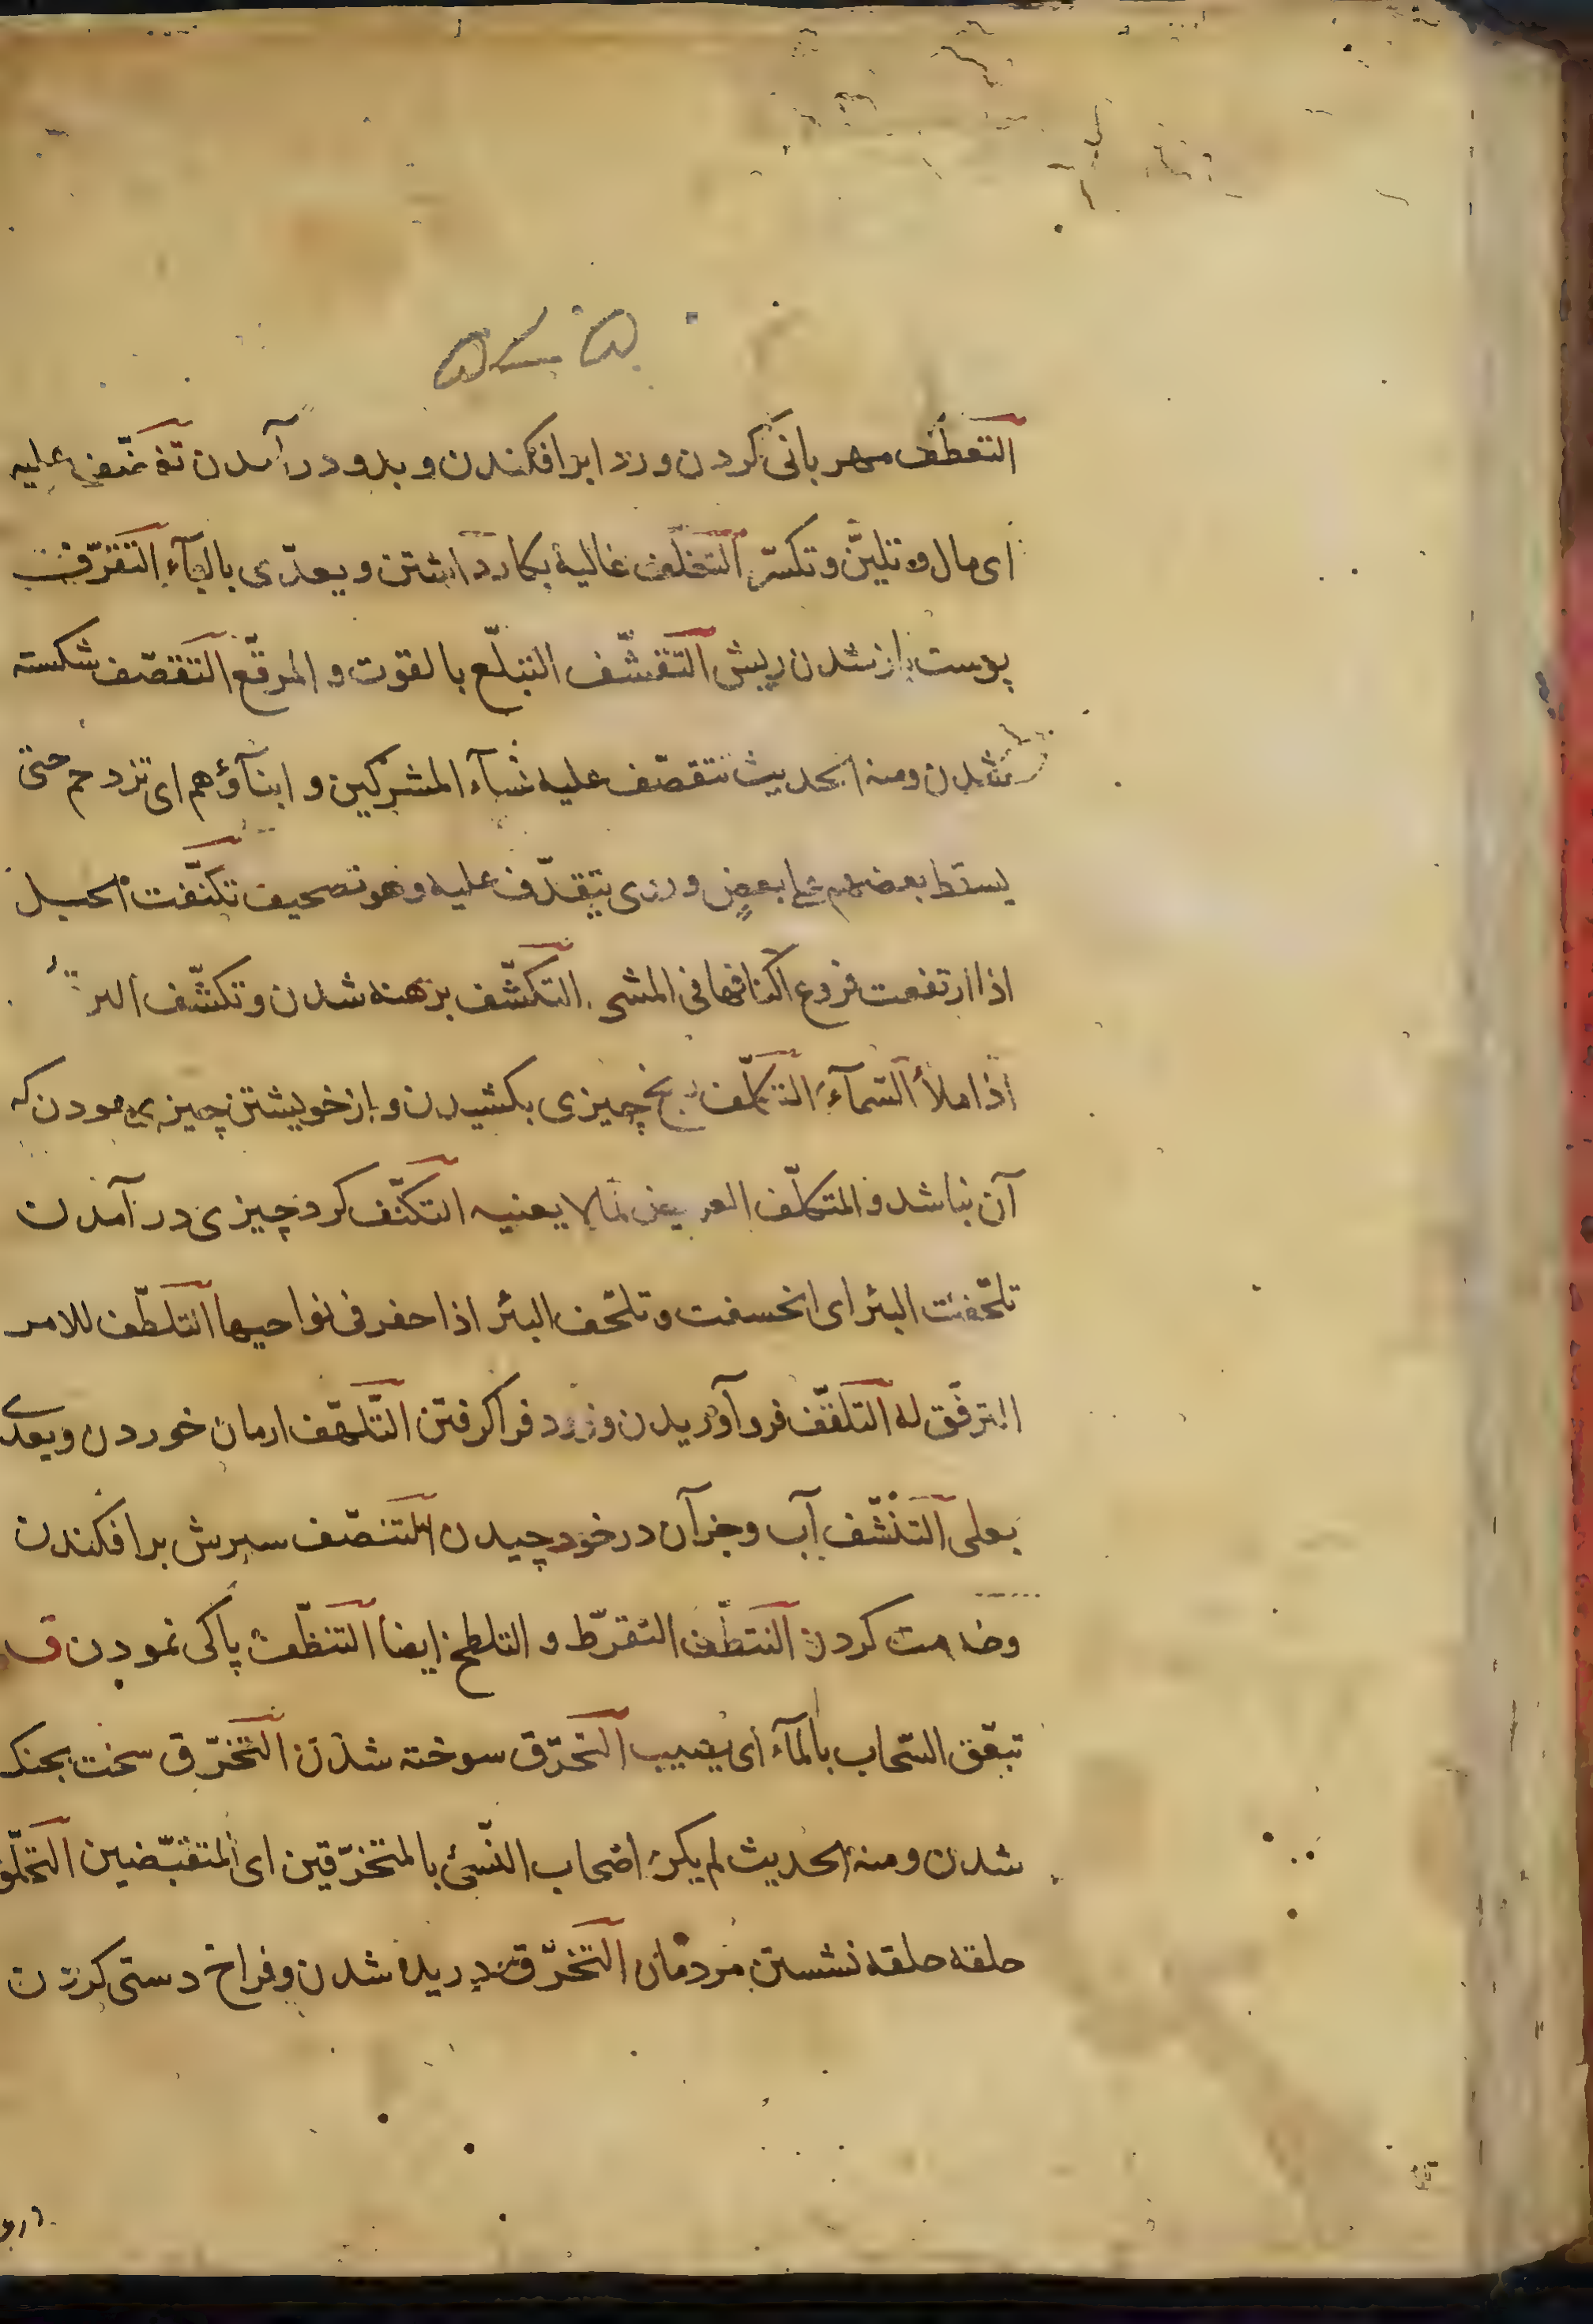 التعطّف مهربانی کردن وردا برافکندن و بدو درآمدن علیه
ای مال و تلیّن و تکسّر التغلّف غالیة بکار داشتن و یعدّی بالبآء التقرّف
پوست باز شدن ریش التقشّف التبلّغ بالقوت و المرقّع التقصّف شکسته
شدن ومنه الحدیث تتقصّف علیه نسآء المشرکین و ابنآؤهم ای تزدحم حتی
یسقط بعضهم علی بعضٍ وروی یتقذّف علیه وهو تصحیف تکتّفت الخیل
اذا ارتفعت فروع اکتافها فی المشی التکشّف برهنه شدن و تکشّف البرق
اذا ملأ السّمآء التکلّف رنج چیزی بکشیدن و از خویشتن چیزی نمودن که
آن نباشد و المتکلّف العریض لما لا یعنیه التکنّف کرد چیزی درآمدن
تلجّفت البئر ای انخسفت و تلجّف البئر اذا حفر فی نواحیها التلطّف للامر
الترفّق له التلقّف فرو آوریدن و زود فراگرفتن التّلهّف ارمان خوردن و یعدی
بعلی التنشّف آب و جز آن در خود چیدن التنصّف سرپوش برافکندن
وخدمت کردن التنطّف التقرّط و التلطخ ایضا التنظّف پاکی نمودن ق
تبعّق السّحاب بالمآء ای یصبب التحرّق سوخته شدن التحزّق سخت بجنک
شدن ومنه الحدیث لم یکن اصحاب النّبیّ بالمتحزّقین ای المتقبّضین التحلّق
حلقه حلقه نشستن مردمان التخرّق دریده شدن و فراخ دستی کردن